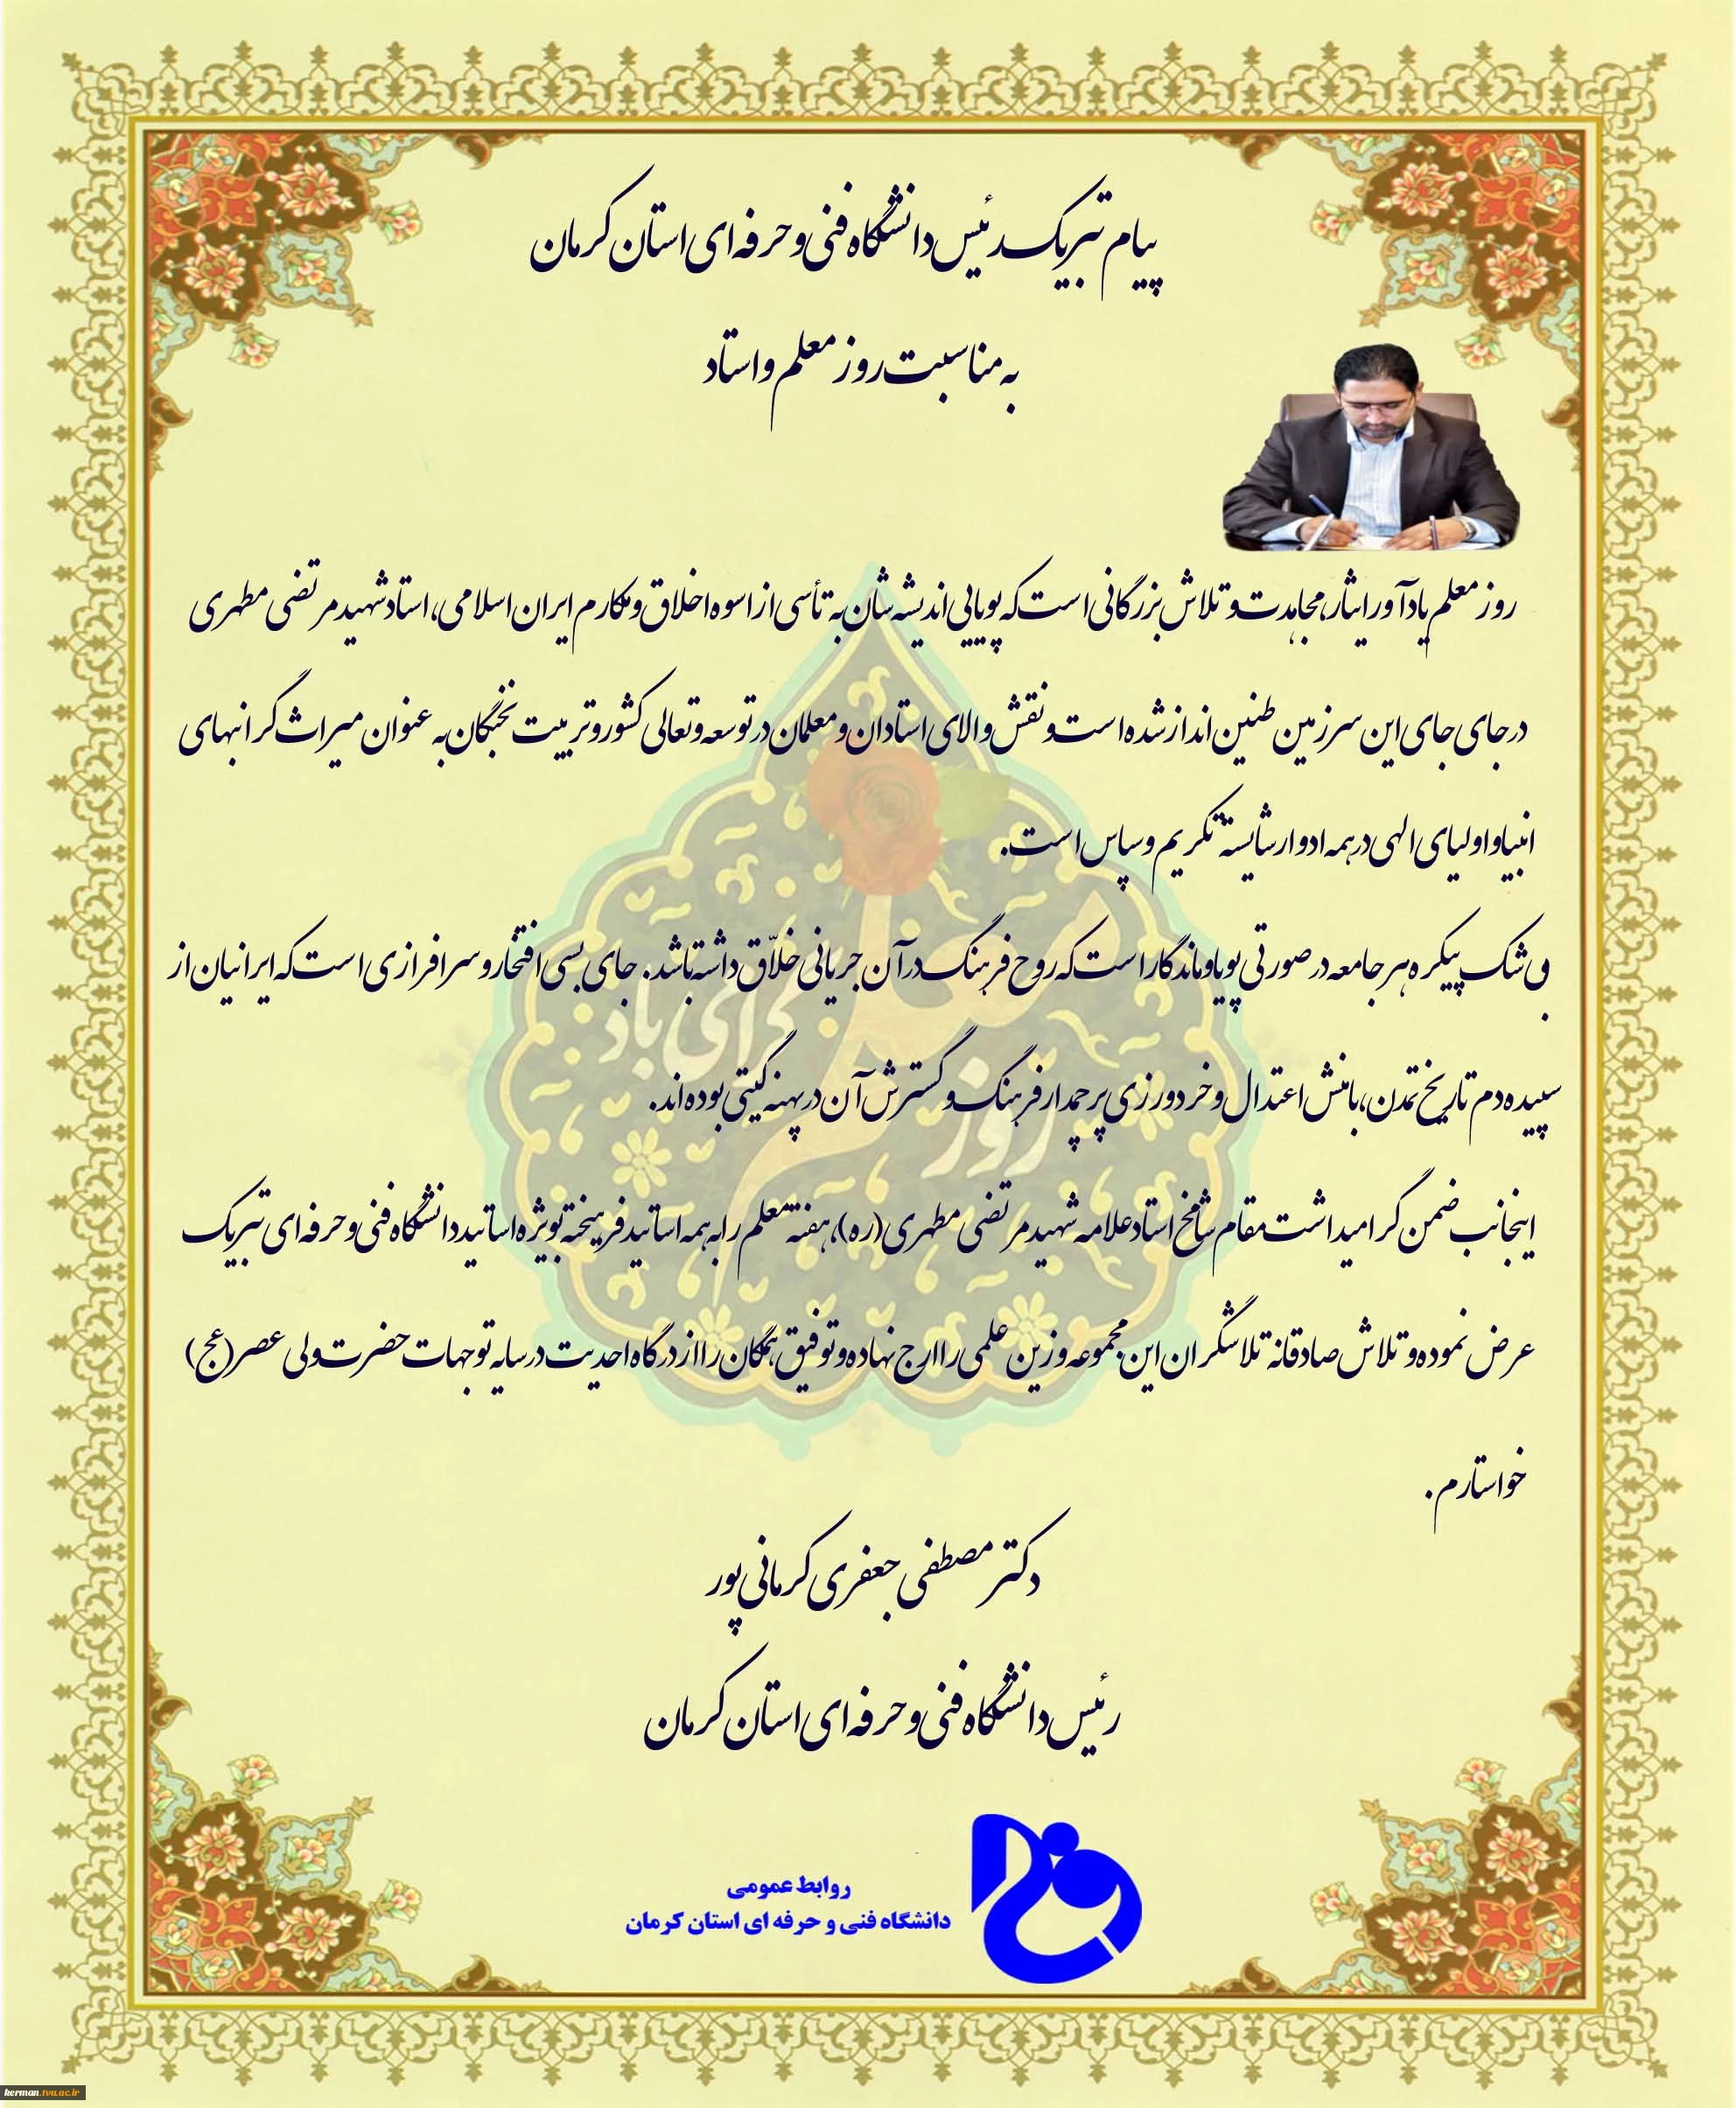 پیام تبریک رئیس دانشگاه فنی و حرفه ای استان کرمان
به مناسبت روز معلم و استاد
روز معلم یادآور ایثار، مجاهدت و تلاش بزرگانی است که پویایی اندیشه شان به تأسی از اسوه اخلاق و مکارم ایران اسلامی، استاد شهید مرتضی مطهری
در جای جای این سرزمین طنین انداز شده است و نقش والای استادان و معلمان در توسعه و تعالی کشور و تربیت نخبگان به عنوان میراث گرانبهای
انبیا و اولیای الهی در همه ادوار شایسته تکریم و سپاس است.
بی شک پیکره هر جامعه در صورتی پویا و ماندگار است که روح فرهنگ در آن جریانی خلاّق داشته باشد. جای بسی افتخار و سرافرازی است که ایرانیان از
سپیده دم تاریخ تمدن، با منش اعتدال و خردورزی پرچمدار فرهنگ و گسترش آن در پهنه گیتی بوده اند.
اینجانب ضمن گرامیداشت مقام شامخ استاد علامه شهید مرتضی مطهری (ره)، هفته معلم را به همه اساتید فرهیخته بویژه اساتید دانشگاه فنی و حرفه ای تبریک
عرض نموده و تلاش صادقانه تلاشگران این مجموعه وزین علمی را ارج نهاده و توفیق همگان را از درگاه احدیت در سایه توجهات حضرت ولی عصر (عج)
خواستارم.
دکتر مصطفی جعفری کرمانی پور
رئیس دانشگاه فنی و حرفه ای استان کرمان
روابط عمومی
دانشگاه فنی و حرفه ای استان کرمان
kerman.tvu.ac.ir